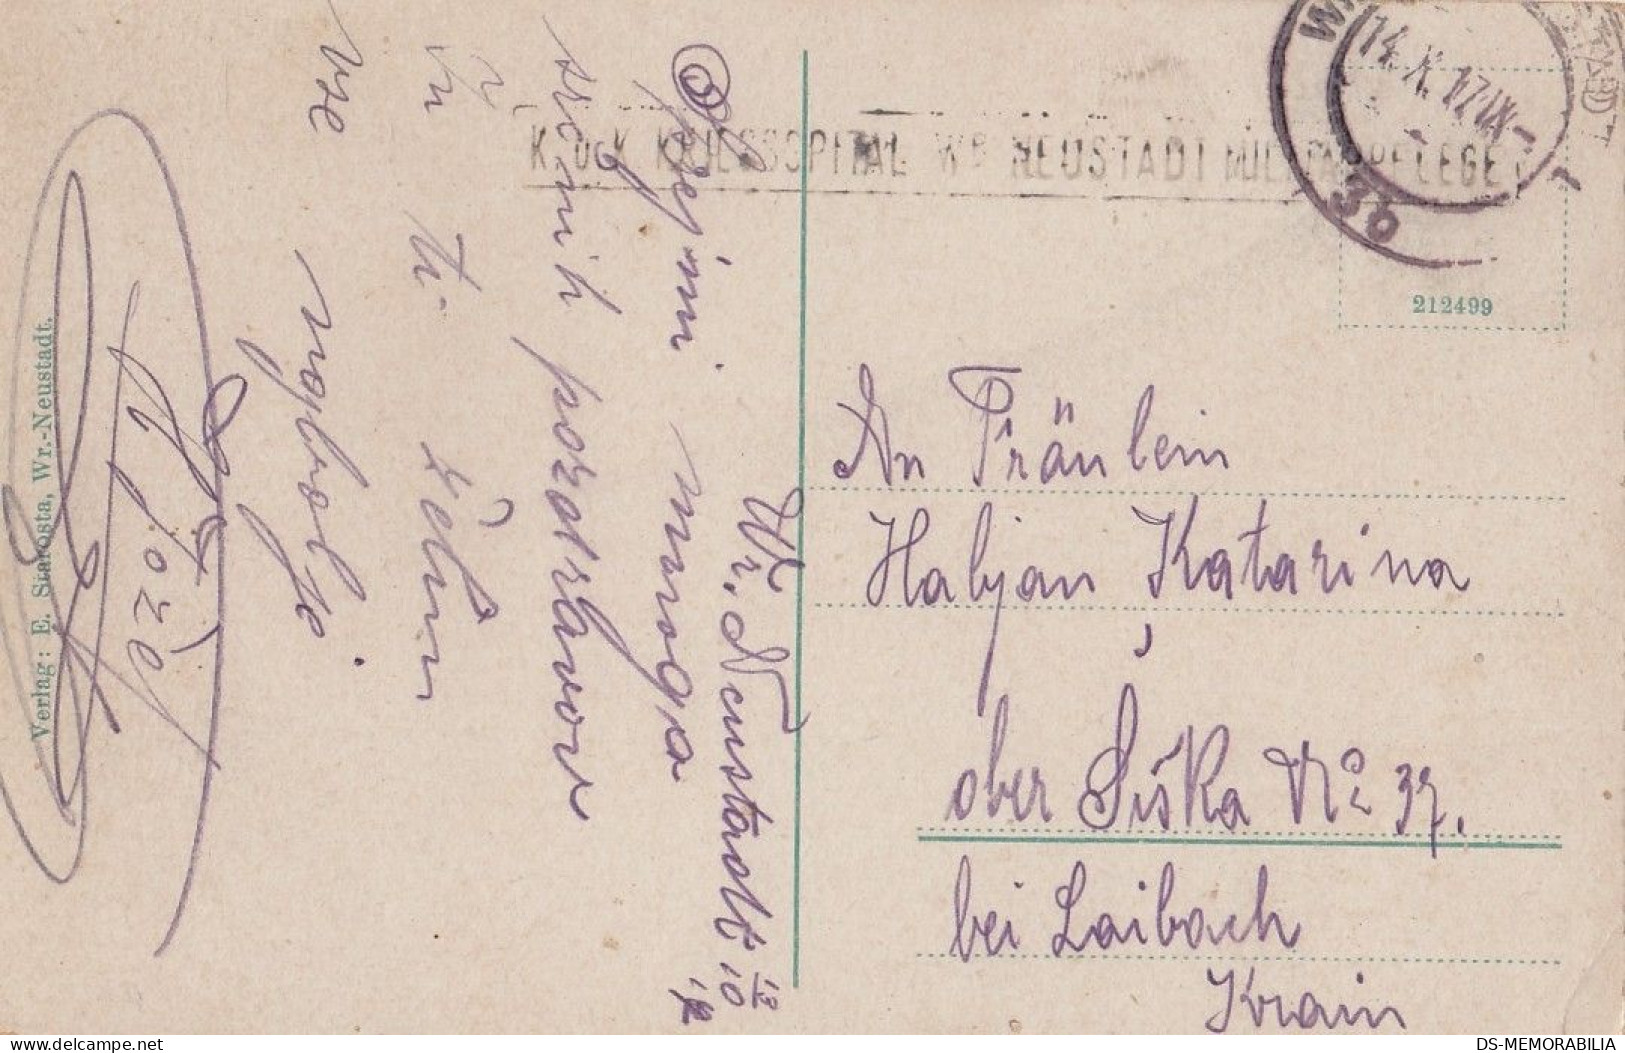 Wr. Neustadt 13/10 17
Sprejmi mnogo
srčnih pozdravov
in ti želim
vse najbolje.
Jože
Verlag: E. Starosta, Wr.-Neustadt.
K. u. K. KRIEGSSPITAL WR NEUSTADT MILITÄRPFLEGE
14. X. 17
3b
212499
An Fräulein
Habjan Katarina
ober Šiška No 37.
bei Laibach
Krain
DS-MEMORABILIA